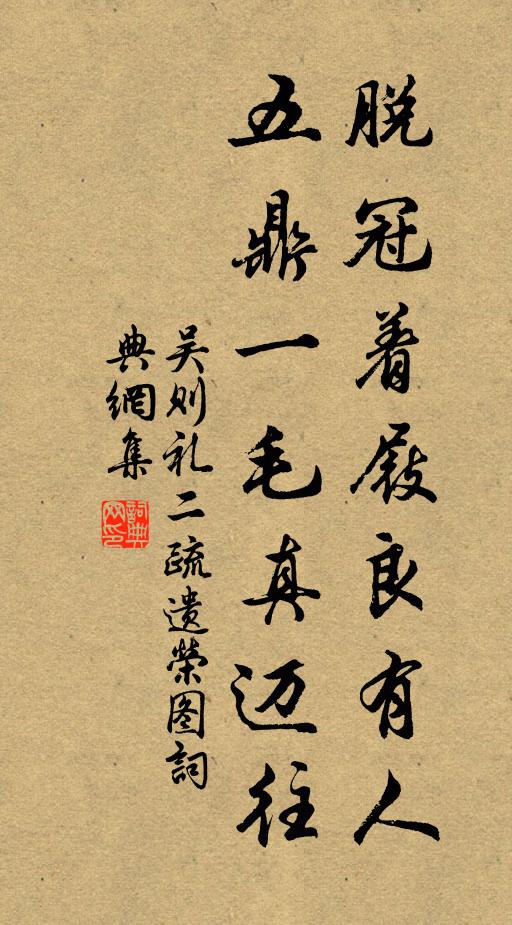 脱冠着屐良有人
五鼎一毛真迈往
吴则礼二疏遗荣图词
典網集
詞典网印